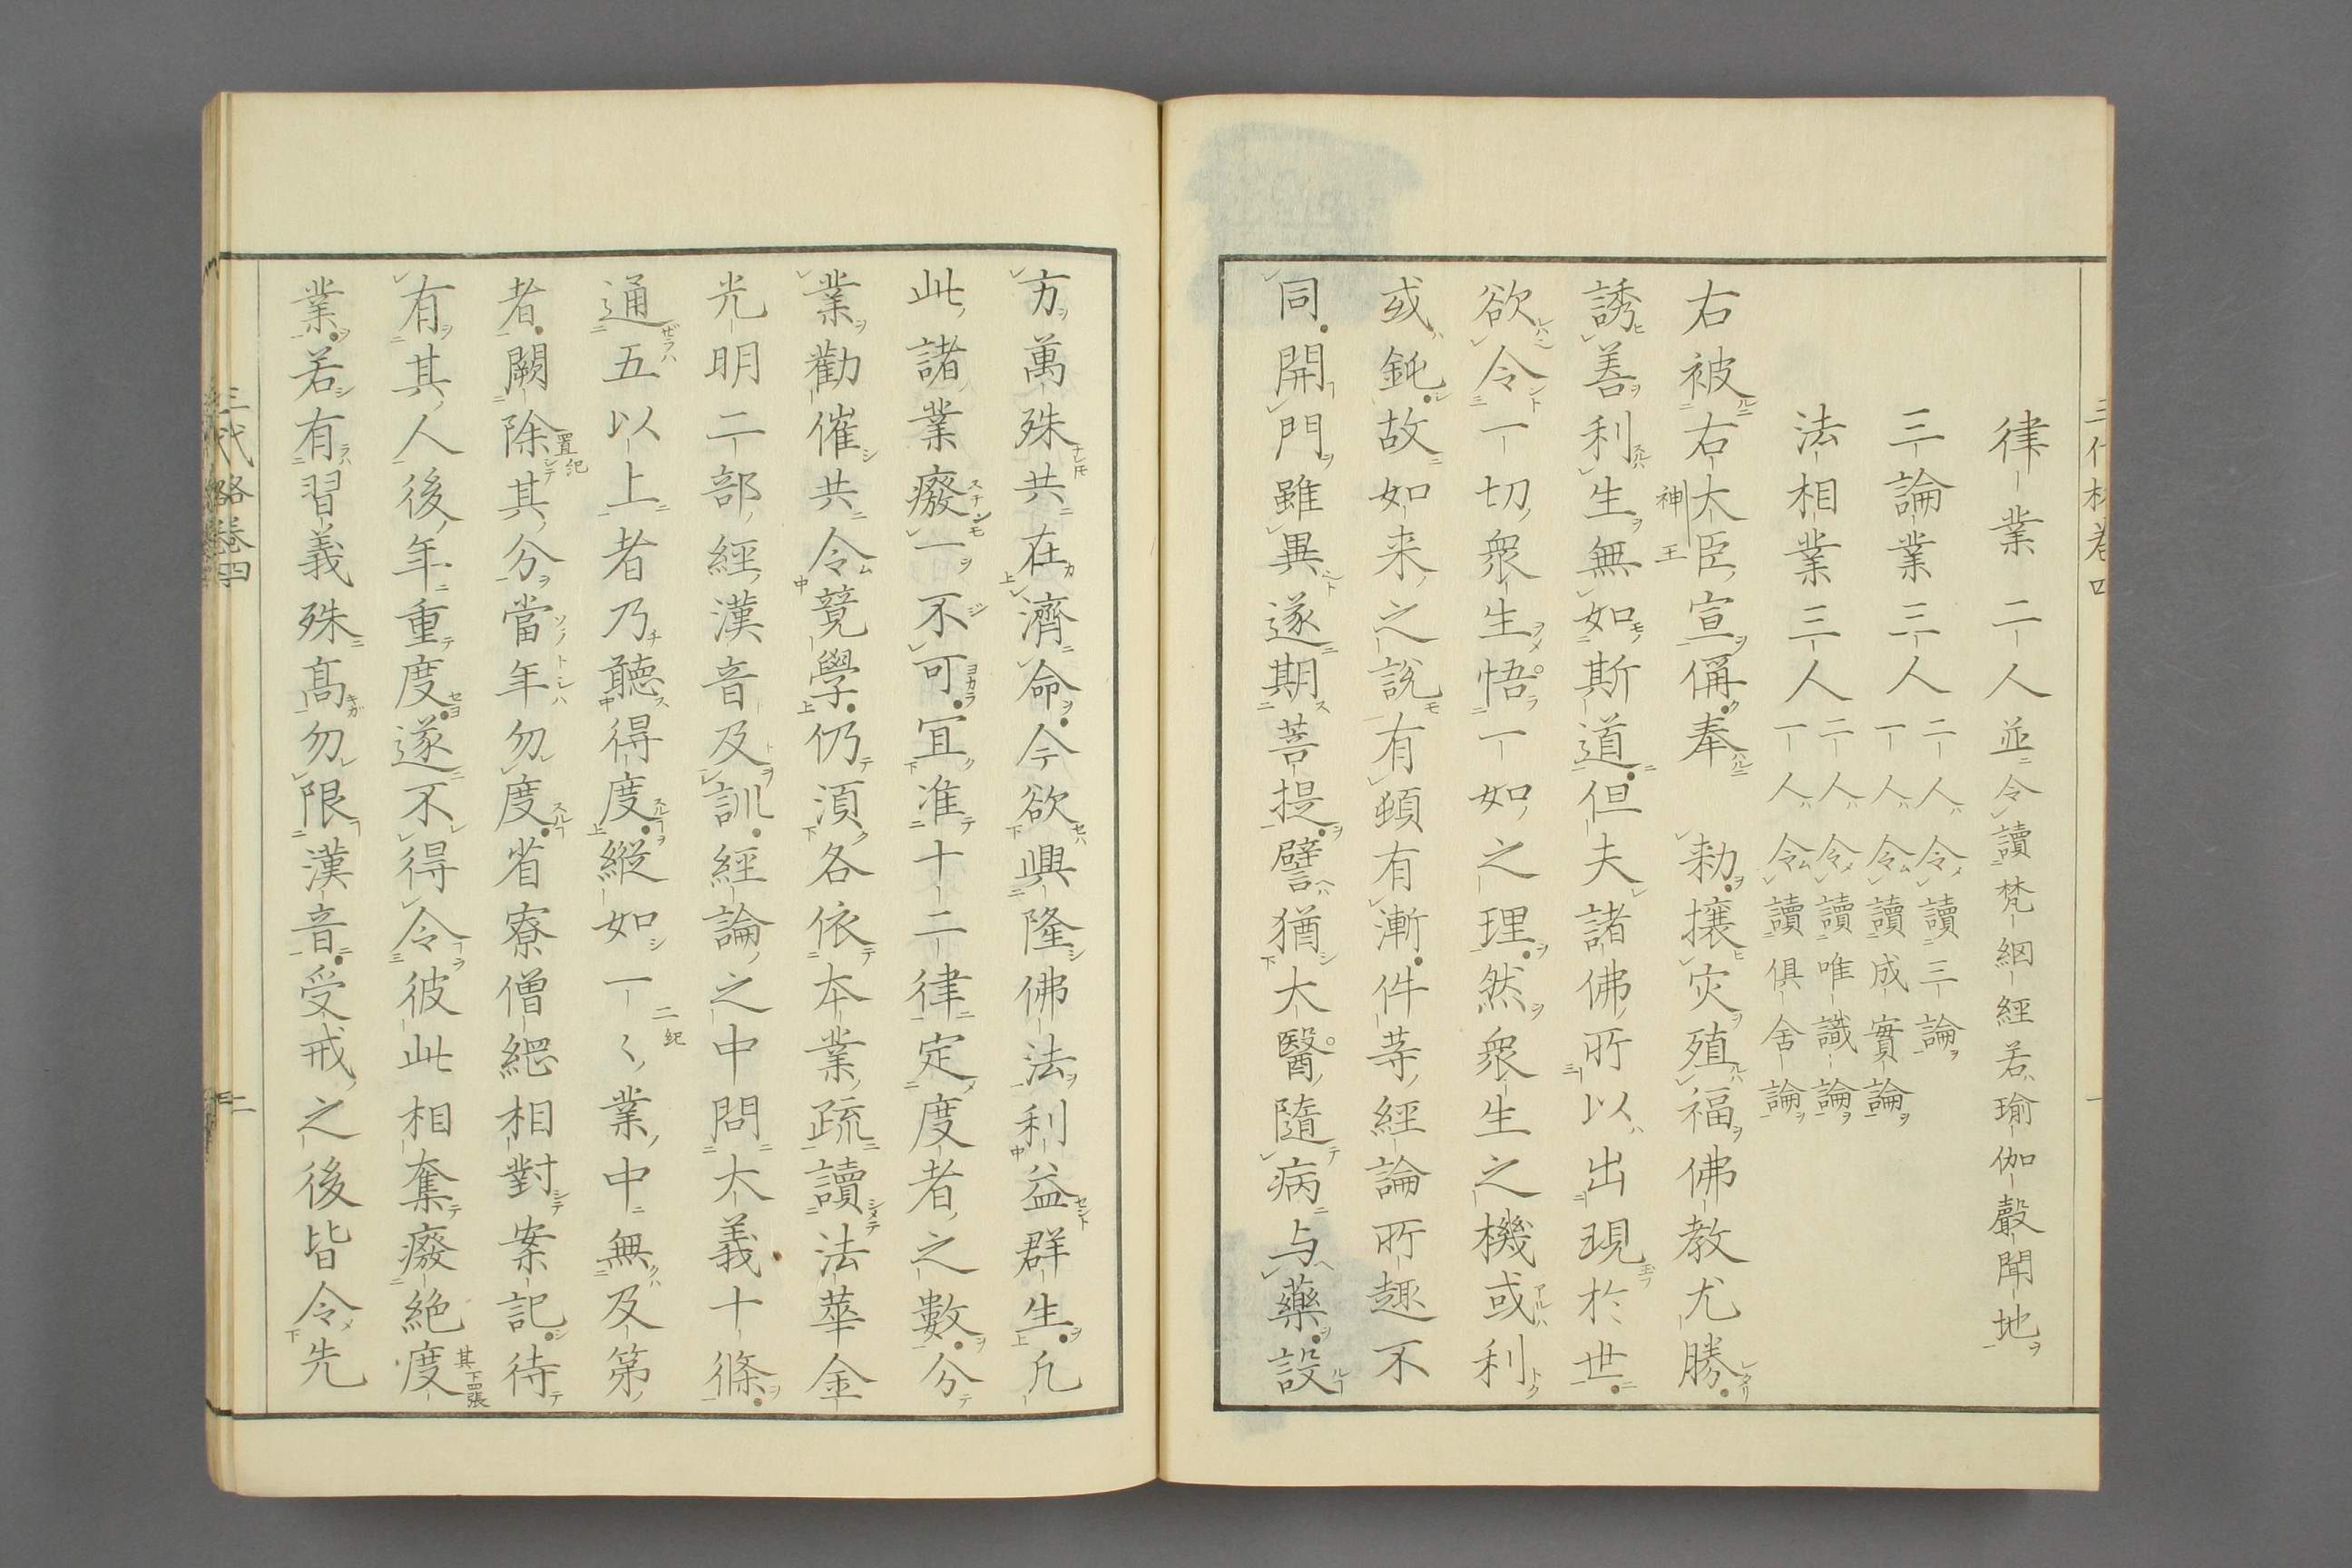 律業二人並令讀梵網經若瑜伽聲聞地
三論業三人二人令讀三論
一人令讀成實論
法相業三人二人令讀唯識論
一人令讀倶舍論
右被右大臣宣偁奉勅攘灾殖福佛教尤勝
神王
誘善利生無如斯道但夫諸佛所以出現於世
欲令一切衆生悟一如之理然衆生之機或利
或鈍故如来之説有頓有漸件等經論所趣不
同開門雖異遂期菩提譬猶大醫隨病与藥設
方萬殊共在濟命今欲興隆佛法利益群生凡
此諸業癈一不可冝准十二律定度者之數分
業勸催共令競學仍湏各依本業疏讀法華金
光明二部經漢音及訓經論之中問大義十條
通五以上者乃聽得度縦如一〻業中無及第
二紀
者闕除其分當年勿度省寮僧綱相對案記待
置紀
有其人後年重度遂不得令彼此相奪癈絶度
其下四張
業若有習義殊髙勿限漢音受戒之後皆令先
三代格巻四
三代格巻四
二